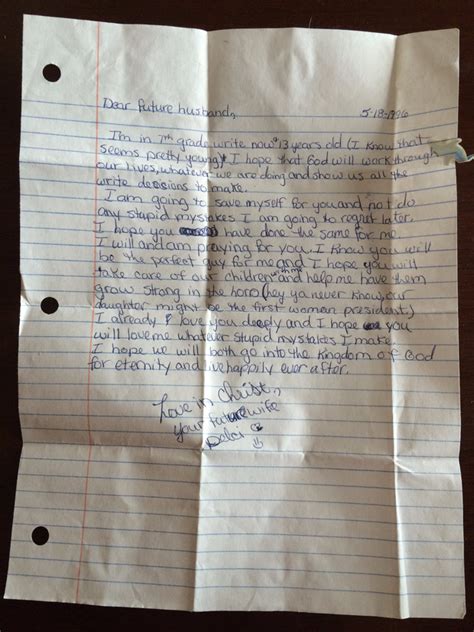 Dear future husband,
5-18-1996
I'm in 7th grade write now 13 years old (I know that
seems pretty young). I hope that God will work through
our lives, whatever we are doing and show us all the
write decisions to make.
I am going to save myself for you and not do
any stupid mystakes I am going to regret later.
I hope you have done the same for me.
I will and am praying for you. I know you will
be the perfect guy for me and I hope you will
take care of our children with me and help me have them
grow strong in the lord (hey ya never know, our
daughter might be the first woman president.)
I already love you deeply and I hope you
will love me whatever stupid mystakes I make.
I hope we will both go into the Kingdom of God
for eternity and live happily ever after.
Love in Christ,
your future wife